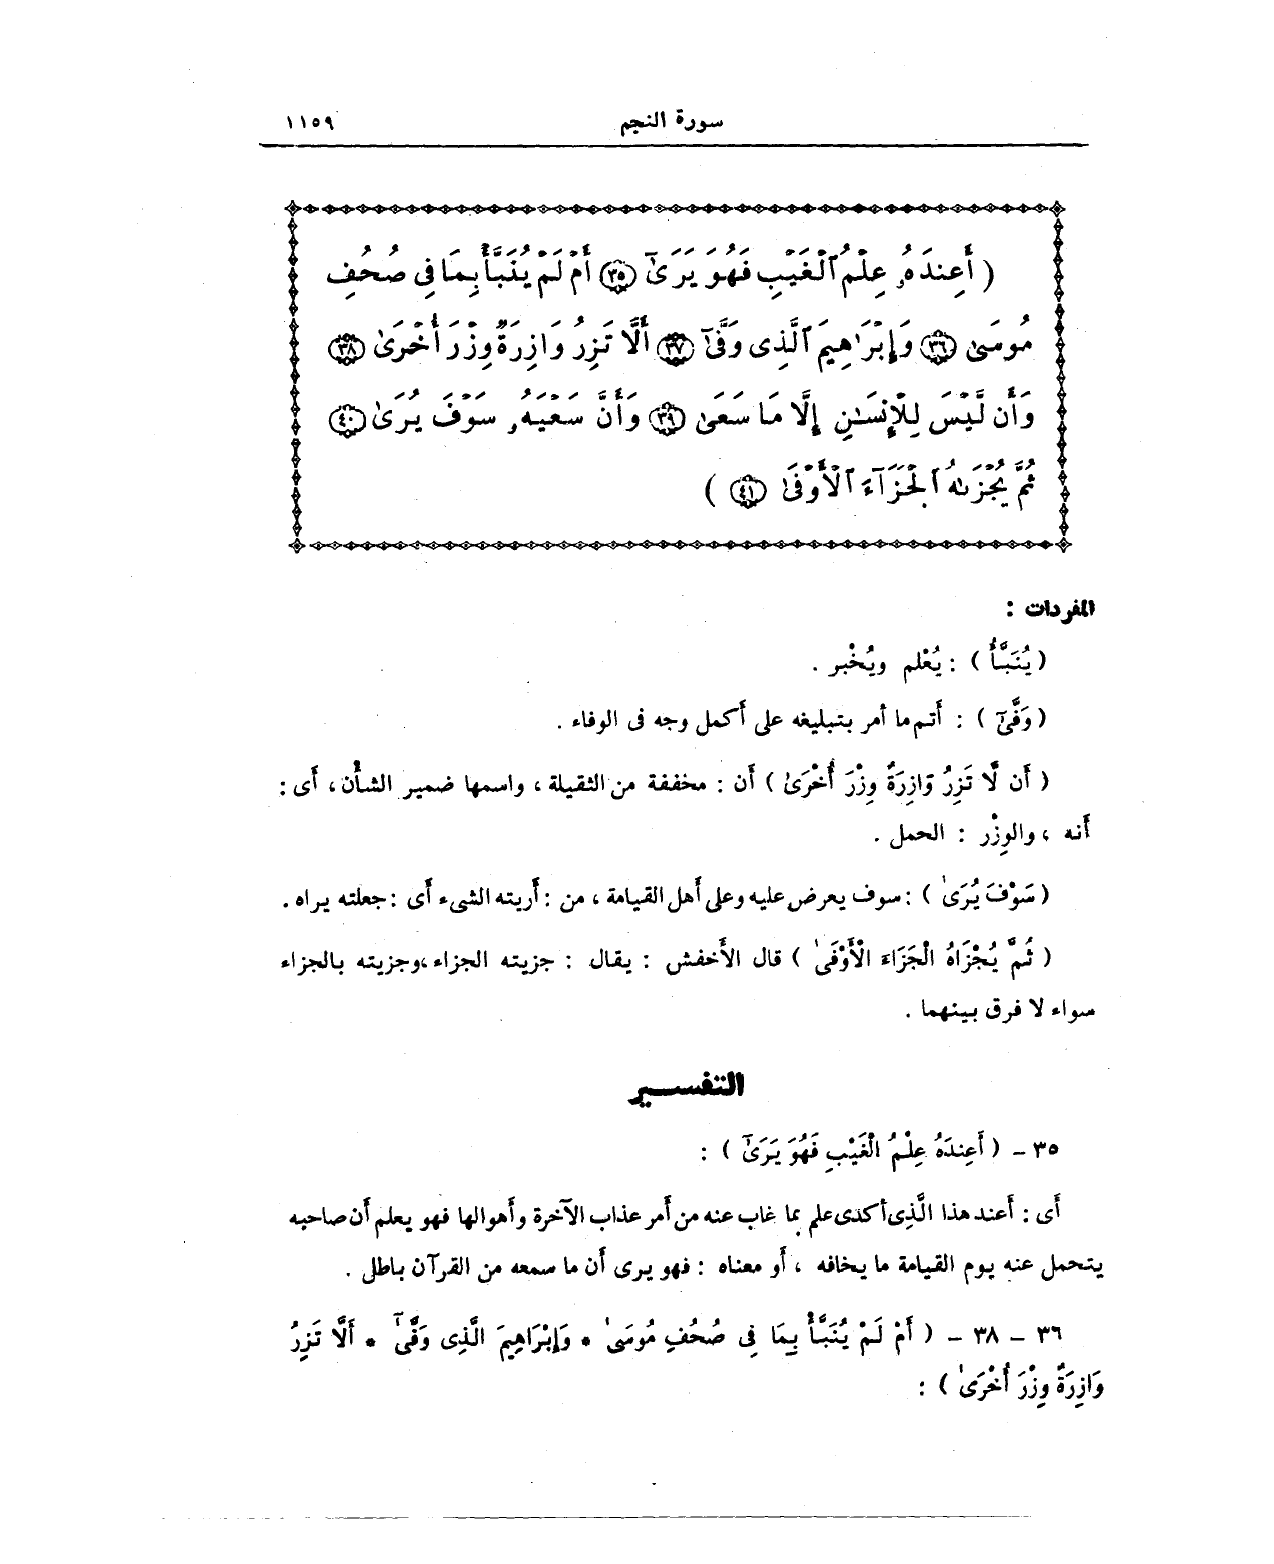 سورة النجم ١١٥٩
( أَعِندَهُۥ عِلْمُ ٱلْغَيْبِ فَهُوَ يَرَىٰٓ ٣٥ أَمْ لَمْ يُنَبَّأْ بِمَا فِى صُحُفِ
مُوسَىٰ ٣٦ وَإِبْرَٰهِيمَ ٱلَّذِى وَفَّىٰٓ ٣٧ أَلَّا تَزِرُ وَازِرَةٌ وِزْرَ أُخْرَىٰ ٣٨
وَأَن لَّيْسَ لِلْإِنسَـٰنِ إِلَّا مَا سَعَىٰ ٣٩ وَأَنَّ سَعْيَهُۥ سَوْفَ يُرَىٰ ٤٠
ثُمَّ يُجْزَىٰهُ ٱلْجَزَآءَ ٱلْأَوْفَىٰ ٤١ )
المفردات :
( يُنَبَّأْ ) : يُعْلم ويُخْبر .
( وَفَّىٰٓ ) : أَتم ما أمر بتبليغه على أَكمل وجه فى الوفاء .
( أَن لَّا تَزِرُ وَازِرَةٌ وِزْرَ أُخْرَىٰ ) أَن : مخففة من الثقيلة ، واسمها ضمير الشأْن ، أَى :
أَنه ، والوِزْر : الحمل .
( سَوْفَ يُرَىٰ ) : سوف يعرض عليه وعلى أَهل القيامة ، من : أَريته الشىء أَى : جعلته يراه .
( ثُمَّ يُجْزَاهُ الْجَزَاءَ الْأَوْفَىٰ ) قال الأَخفش : يقال : جزيته الجزاء ،وجزيته بالجزاء
سواء لا فرق بينهما .
التفسـير
٣٥ – ( أَعِندَهُ عِلْمُ الْغَيْبِ فَهُوَ يَرَىٰٓ ) :
أَى : أَعند هذا الَّذِى أَكدى علم بما غاب عنه من أَمر عذاب الآخرة وأَهوالها فهو يعلم أَن صاحبه
يتحمل عنه يوم القيامة ما يخافه ، أَو معناه : فهو يرى أَن ما سمعه من القرآن باطل .
٣٦ – ٣٨ – ( أَمْ لَمْ يُنَبَّأْ بِمَا فِى صُحُفِ مُوسَىٰ * وَإِبْرَاهِيمَ الَّذِى وَفَّىٰٓ * أَلَّا تَزِرُ
وَازِرَةٌ وِزْرَ أُخْرَىٰ ) :